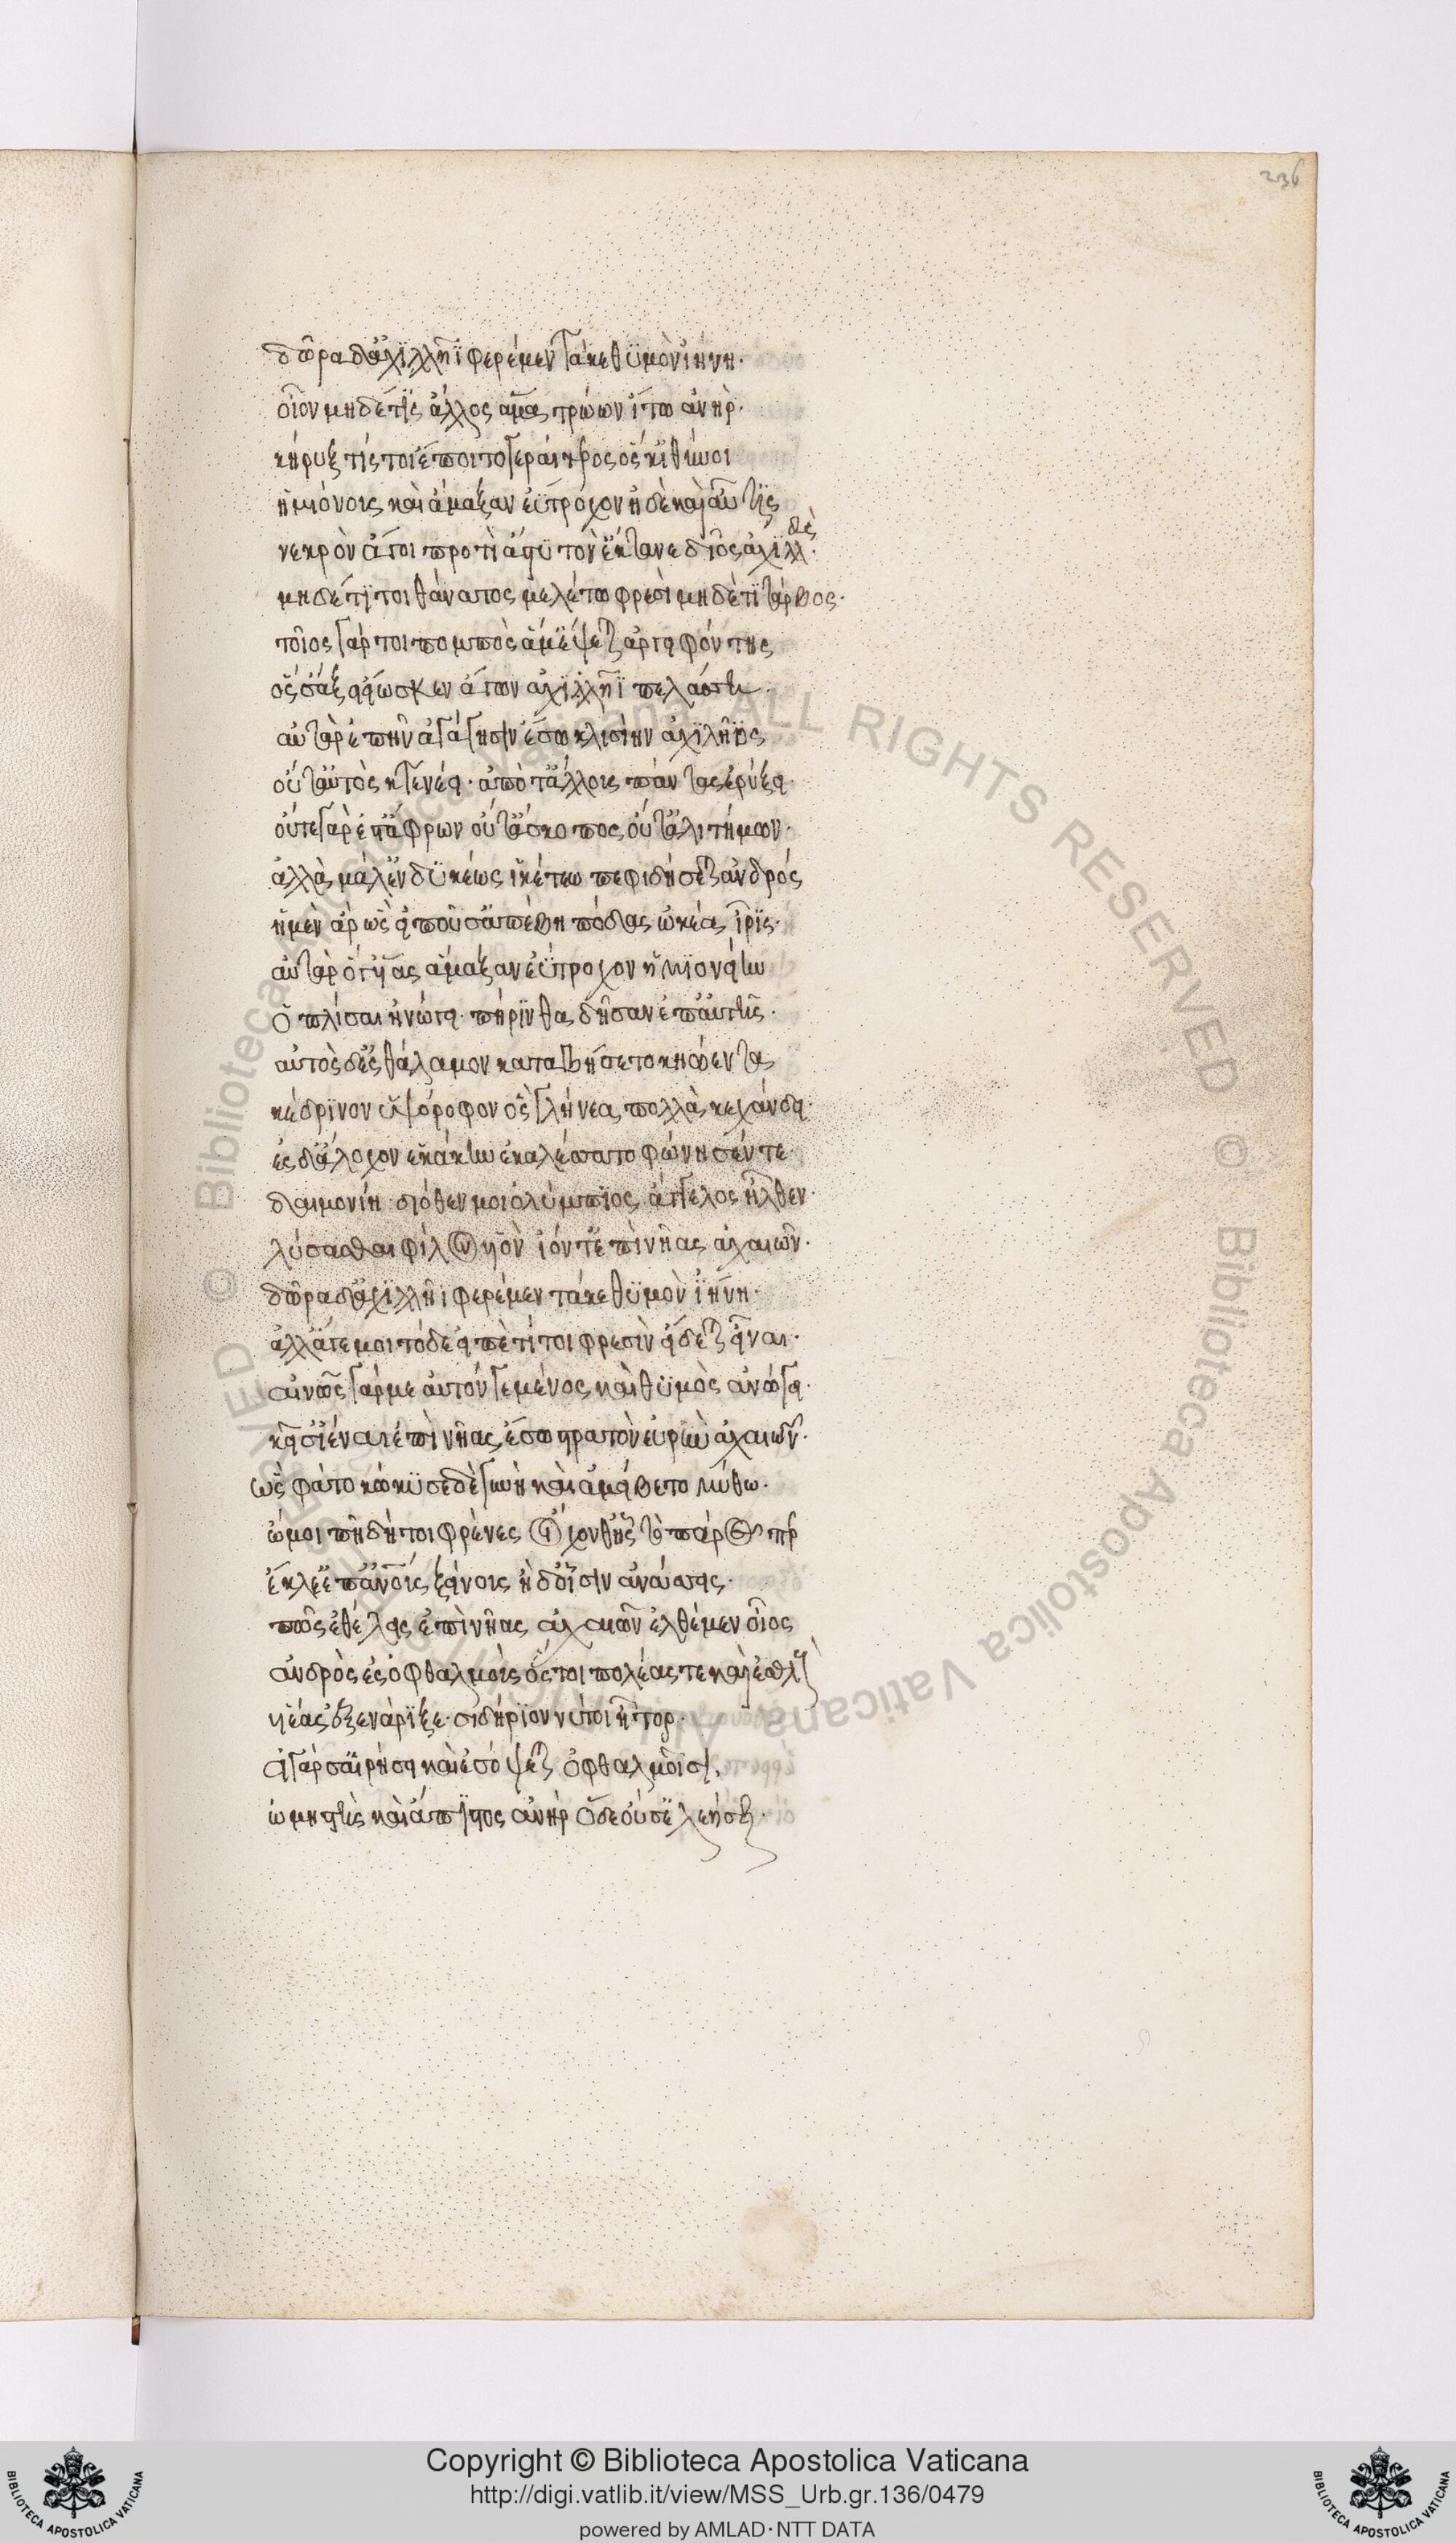 236
δῶρα δ' ἀχιλλῆϊ φερέμεν τά κε θυμὸν ἰήνη·
οἶον μηδέ τις ἄλλος ἅμα τρώων ἴτω ἀνήρ·
κήρυξ τίς τοι ἕποιτο γεραίτερος ὅς κ' ἰθύνοι
ἡμιόνους καὶ ἄμαξαν ἐΰτροχον ἠδὲ καὶ αὖτις
νεκρὸν ἄγοι προτὶ ἄστυ τὸν ἔκτανε δῖος ἀχιλλεύς·
μηδέ τί τοι θάνατος μελέτω φρεσὶ μηδέ τι τάρβος·
τοῖος γάρ τοι πομπὸς ἅμ' ἕψεται ἀργειφόντης
ὅς σ' ἄξει εἵως κεν ἄγων ἀχιλλῆϊ πελάσση·
αὐτὰρ ἐπὴν ἀγάγησιν ἔσω κλισίην ἀχιλῆος
οὔτ' αὐτὸς κτενέει· ἀπό τ' ἄλλους πάντας ἐρύξει·
οὔτε γάρ ἐστ' ἄφρων οὔτ' ἄσκοπος οὔτ' ἀλιτήμων·
ἀλλὰ μάλ' ἐνδυκέως ἱκέτεω πεφιδήσεται ἀνδρός
ἡ μὲν ἄρ' ὣς εἰποῦσ' ἀπέβη πόδας ὠκέα ἶρις·
αὐτὰρ ὅ γ' υἷας ἄμαξαν ἐΰτροχον ἡμιονείην
ὁπλίσαι ἠνώγει· πείρινθα δῆσαν ἐπ' αὐτῆς·
αὐτὸς δ' ἐς θάλαμον κατεβήσετο κηώεντα
κέδρινον ὑψόροφον ὃς γλήνεα πολλὰ κεχάνδει·
ἐς δ' ἄλοχον ἑκάβην ἐκαλέσσατο φώνησέν τε
δαιμονίη διόθεν μοι ὀλύμπιος ἄγγελος ἦλθεν·
λύσασθαι φίλον υἱὸν ἰόντ' ἐπὶ νῆας ἀχαιῶν·
δῶρα δ' ἀχιλλῆϊ φερέμεν τά κε θυμὸν ἰήνη·
ἀλλ' ἄγε μοι τόδε εἰπὲ τί τοι φρεσὶν εἴδεται εἶναι·
αἰνῶς γάρ με αὐτόν γε μένος καὶ θυμὸς ἀνώγει·
κεῖσ' ἰέναι ἐπὶ νῆας ἔσω στρατὸν εὐρὺν ἀχαιῶν·
ὣς φάτο κώκυσε δὲ γυνὴ καὶ ἀμείβετο μύθω·
ὤ μοι πῆ δή τοι φρένες οἴχονθ' ἧς τὸ πάρος περ
ἔκλε' ἐπ' ἀνθρώπους ξείνους ἠδ' οἷσιν ἀνάσσεις·
πῶς ἐθέλεις ἐπὶ νῆας ἀχαιῶν ἐλθέμεν οἶος
ἀνδρὸς ἐς ὀφθαλμοὺς ὅς τοι πολέας τε καὶ ἐσθλοὺς
υἱέας ἐξενάριξε· σιδήριον νύ τοι ἦτορ·
εἰ γάρ σ' αἱρήσει καὶ ἐσόψεται ὀφθαλμοῖσιν
ὠμηστὴς καὶ ἄπιστος ἀνὴρ ὅδε οὔ σ' ἐλεήσει·
Copyright © Biblioteca Apostolica Vaticana
http://digi.vatlib.it/view/MSS_Urb.gr.136/0479
powered by AMLAD·NTT DATA